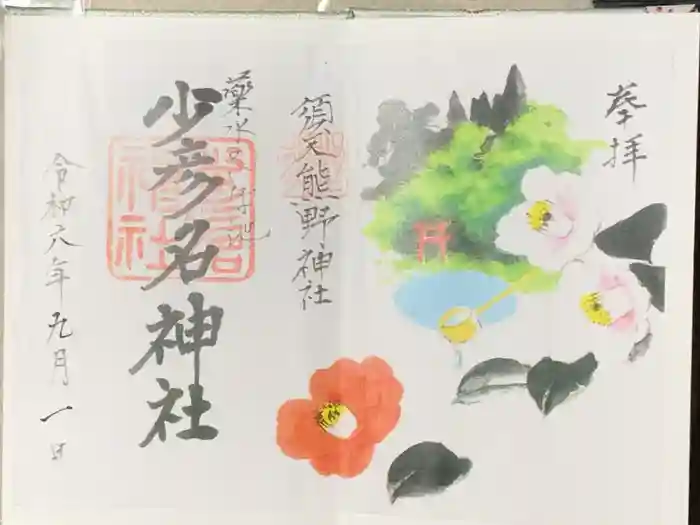 奉拝
須天熊野神社
藥水
少彦名神社
令和元年九月一日